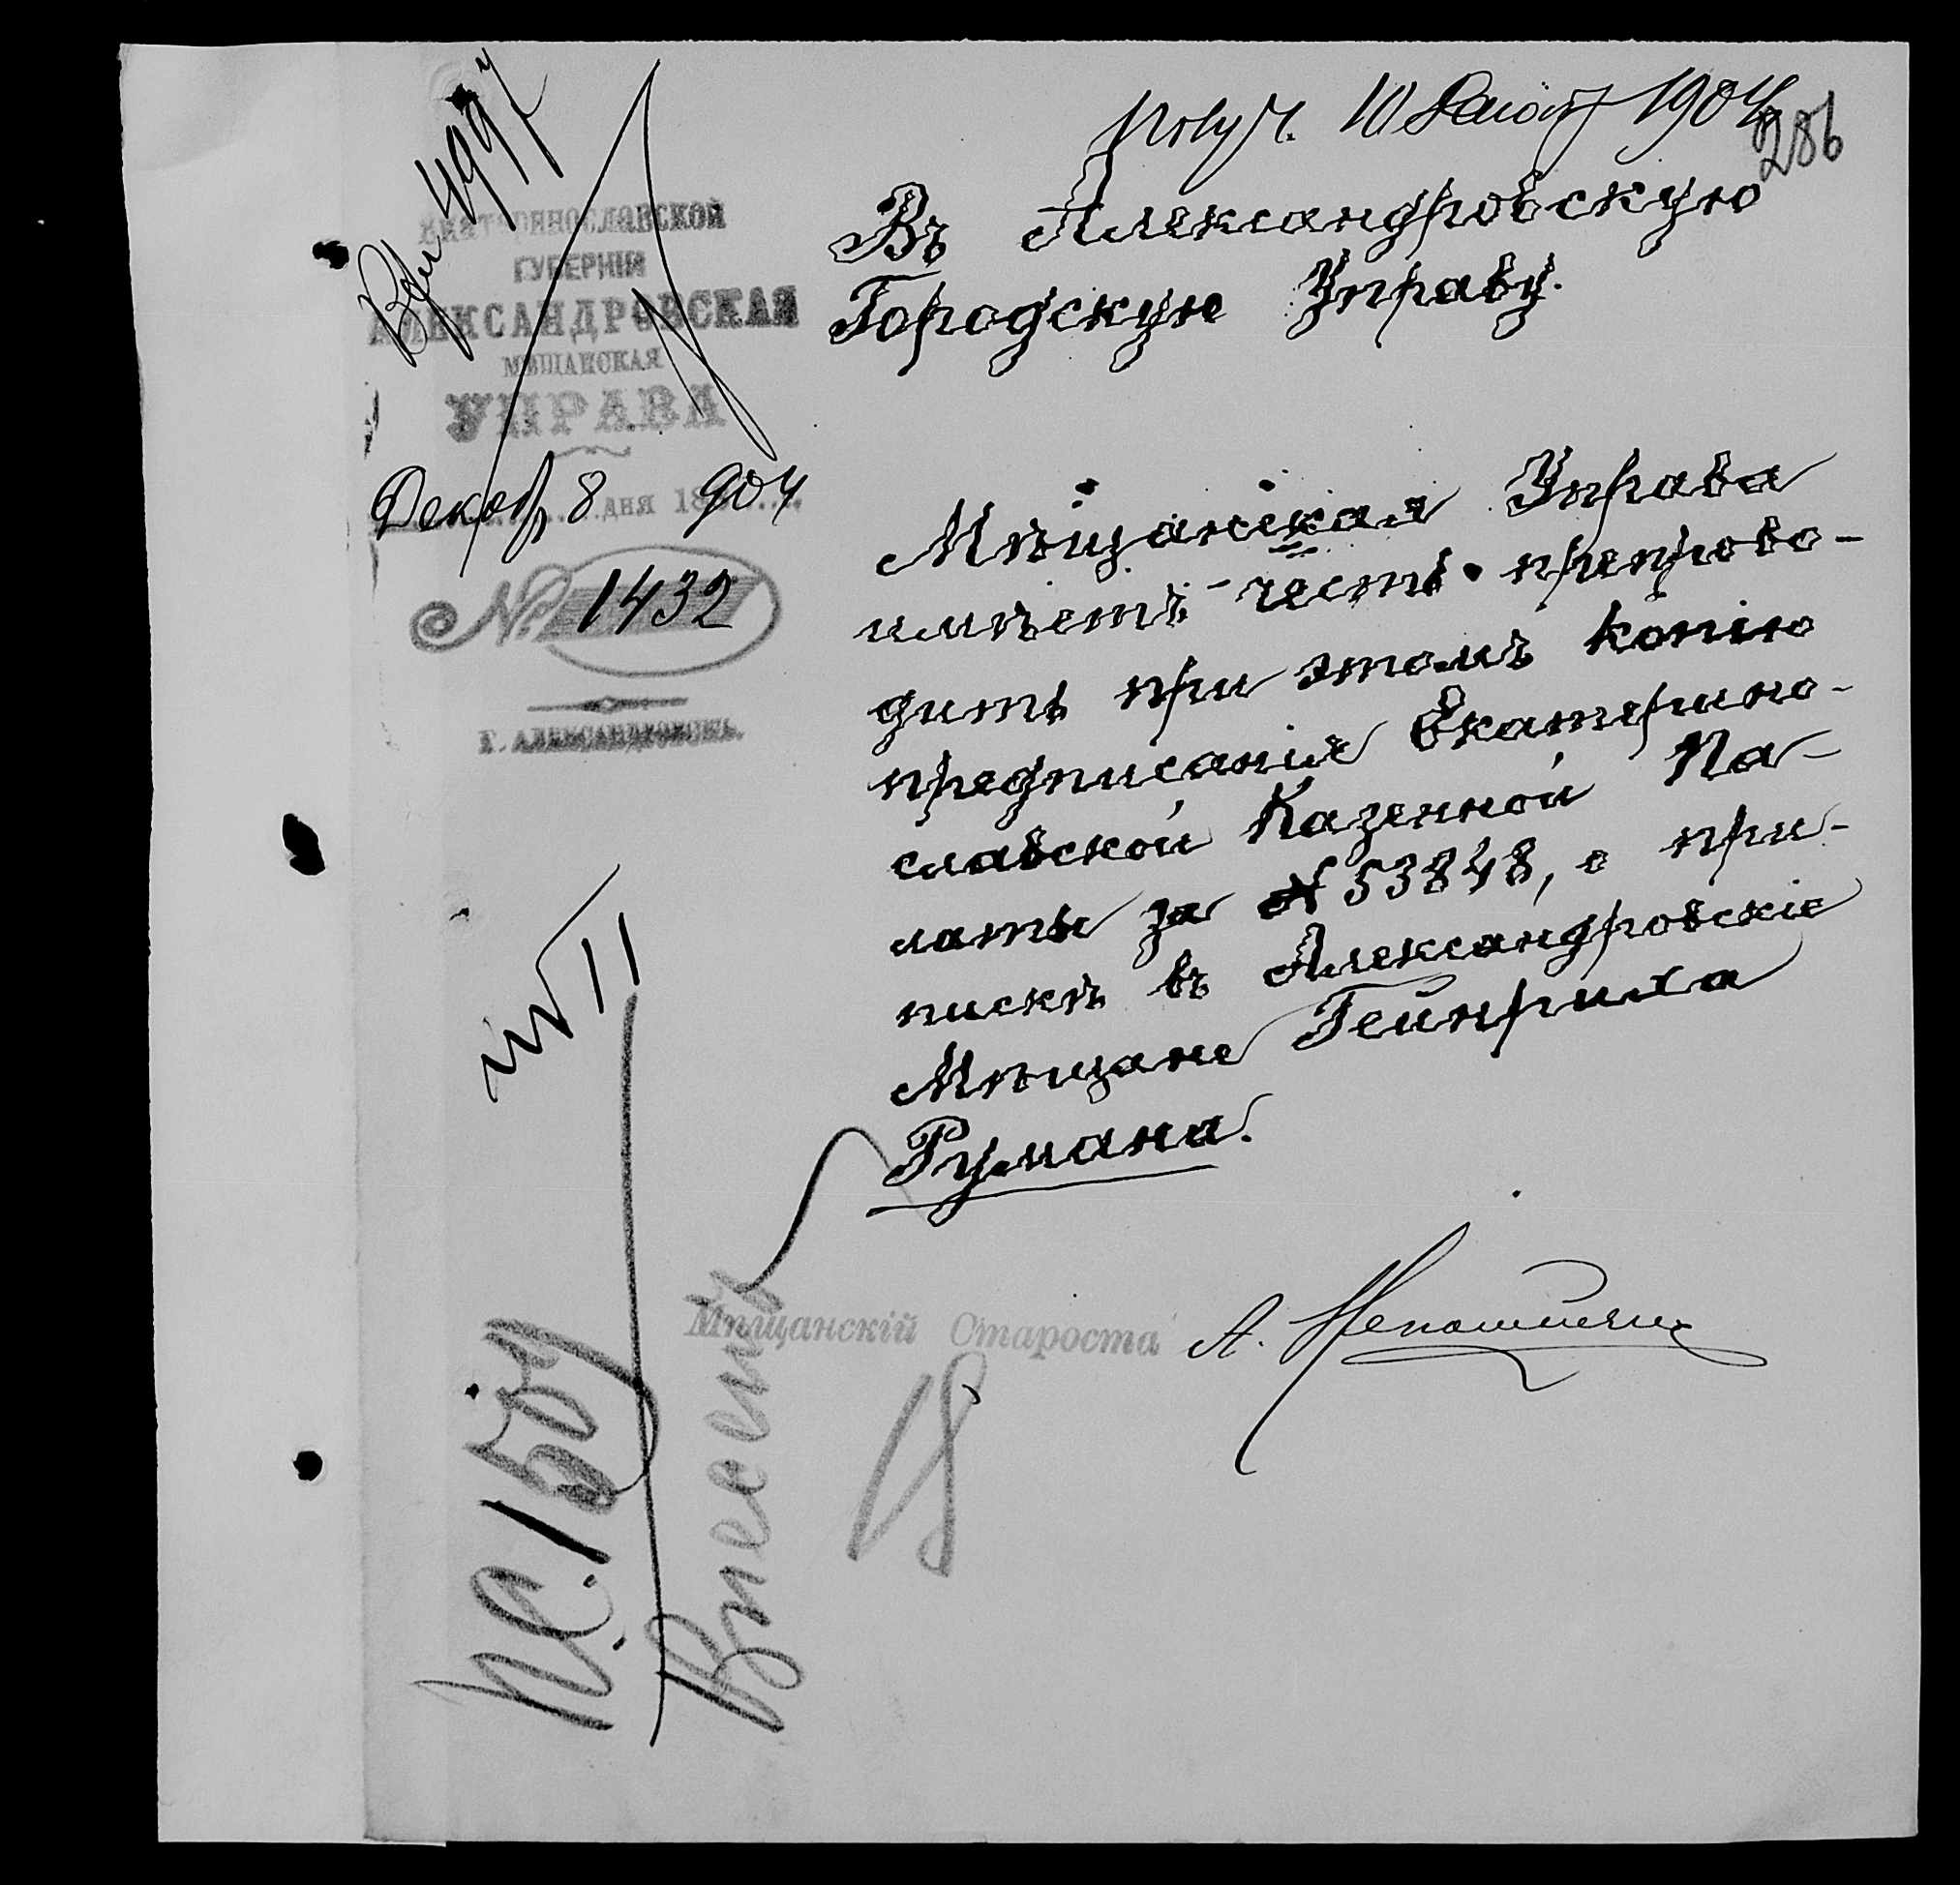 Получ. 10 Декабр 1904
286
Вх. 4997
ЕКАТЕРИНОСЛАВСКОЙ
ГУБЕРНІИ
АЛЕКСАНДРОВСКАЯ
МѢЩАНСКАЯ
УПРАВА
Декабр 8 дня 1904
№ 1432
Г. АЛЕКСАНДРОВСКЪ.
Въ Александровскую
Городскую Управу.
Мѣщанская Управа
имѣетъ честь препрово-
дить при этомъ копію
предписанія Екатерино-
славской Казенной Па-
латы за № 53848, о при-
пискѣ въ Александровскіе
Мѣщане Гейнриха
Румана.
Мѣщанскій Староста А.